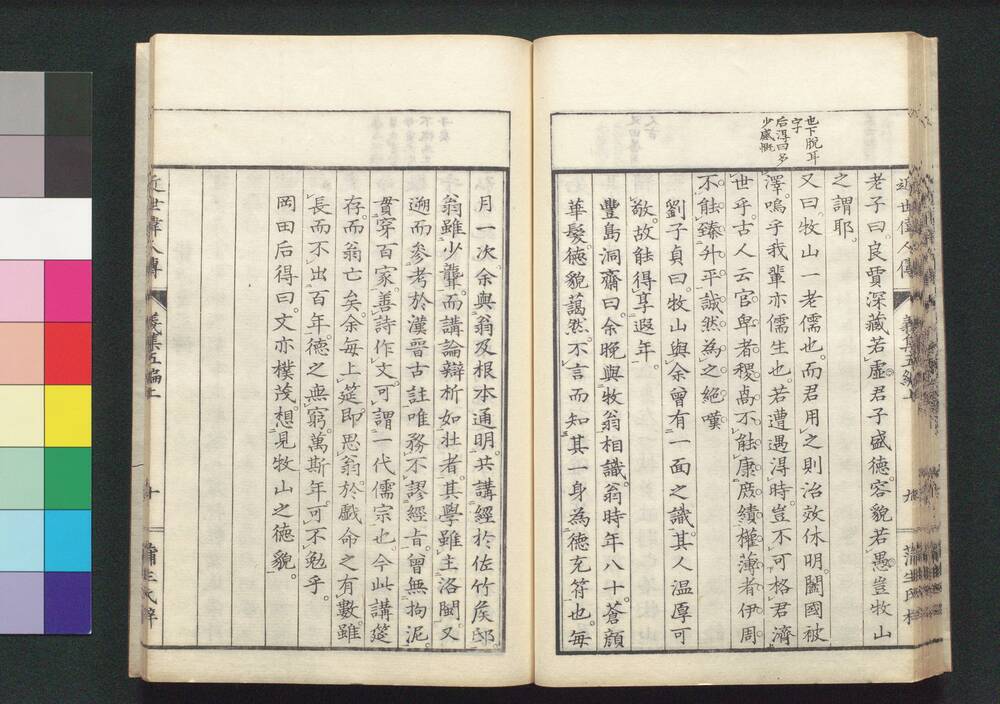 也下脱耳
字
后得曰多
少感慨
老子曰。良賈深藏若虛。君子盛德。容貌若愚。豈牧山
之謂耶。
又曰。牧山一老儒也。而君用之則治效休明。闔國被
澤。嗚乎我輩亦儒生也。若遭遇得時。豈不可格君濟
世乎。古人云。官卑者稷卨不能康庶績。權薄者伊周
不能臻升平。誠然。為之絕嘆
劉子貞曰。牧山與余曾有一面之識。其人溫厚可
敬。故能得享遐年。
豐島洞齋曰。余晚與牧翁相識。翁時年八十。蒼顏
華髮。德貌藹然。不言而知其一身為德充符也。每
月一次。余與翁及根本通明。共講經於佐竹侯邸。
翁雖少聾。而講論辯析如壯者。其學雖主洛閩。又
遡而參考於漢晉古註。唯務不謬經旨。曾無拘泥。
貫穿百家。善詩作文。可謂一代儒宗也。今此講筵
存。而翁亡矣。余每上筵。即思翁。於戲命之有數。雖
長而不出百年。德之無窮。萬斯年。可不勉乎。
岡田后得曰。文亦樸茂。想見牧山之德貌。
近世偉人傳
義集五編上
十
蒲生氏梓